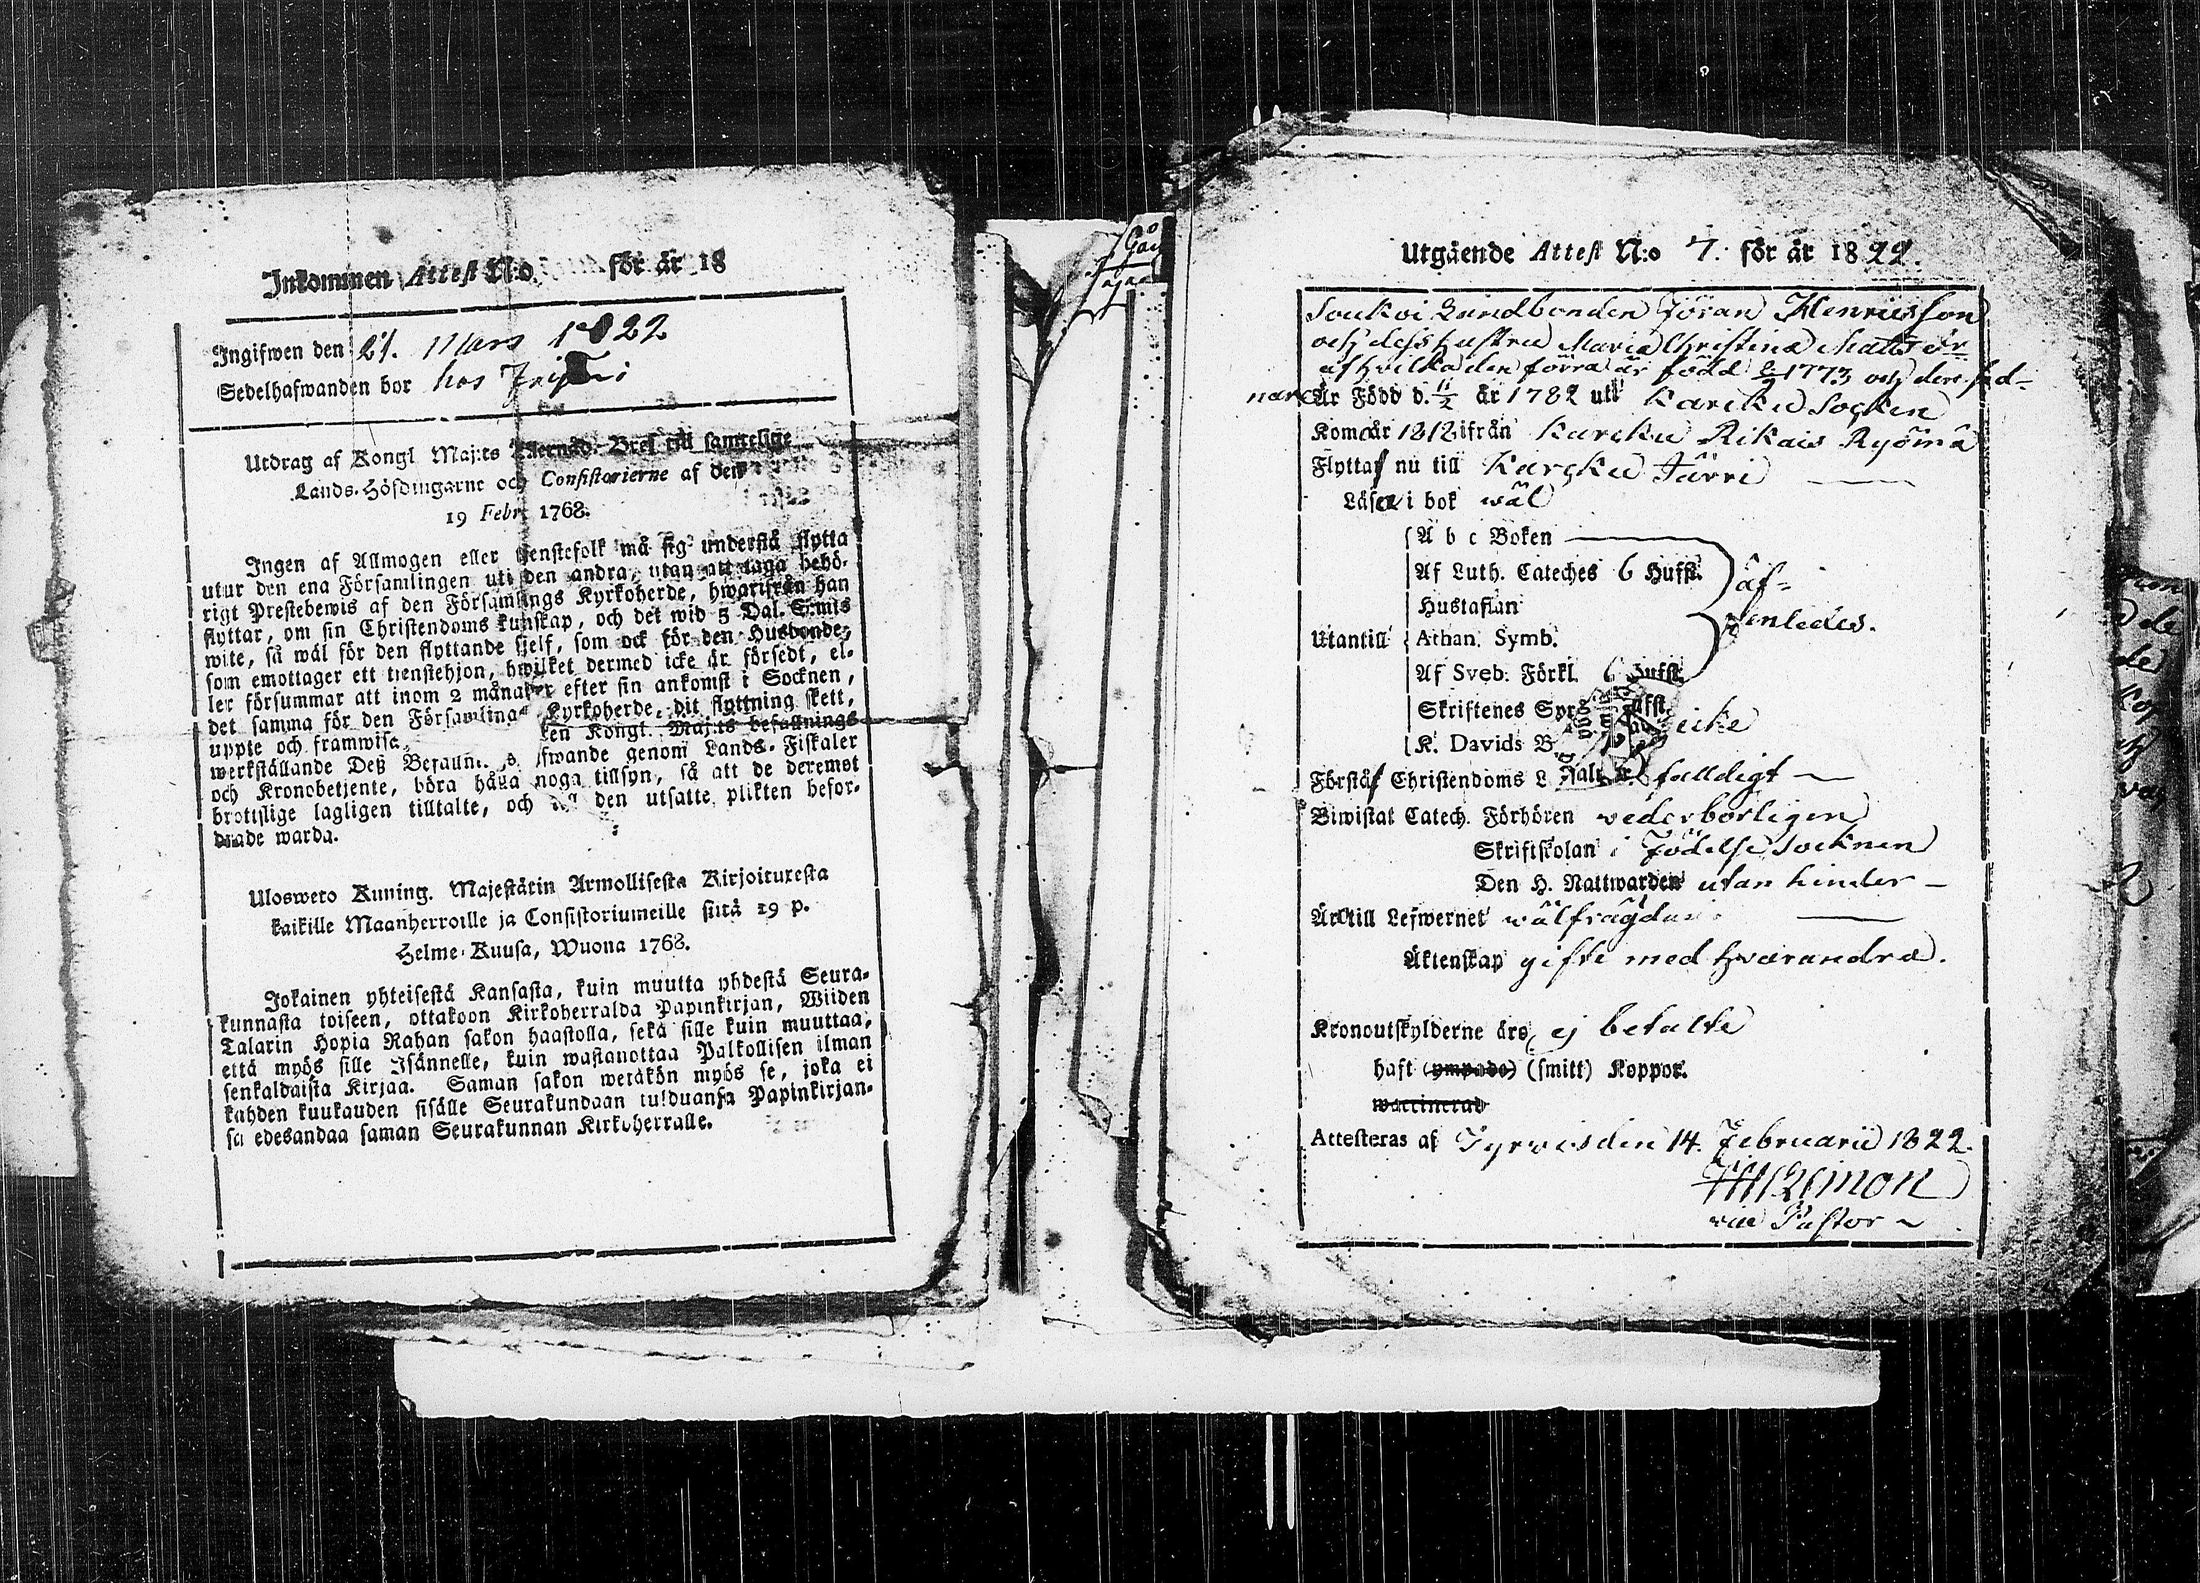 Inkommen Attest N:o för år 18
Ingifwen den 21. Mars 1822
Sedelhafwanden bor hos
Utdrag af Kongl Maj:ts Bref till samtelige
Lands-Höfdingarne och Consistorierne af den
19 Febr. 1768.
Ingen af Allmogen eller tjenstefolk må sig understå flytta
utur den ena Församlingen uti den andra, utan att taga behö-
rigt Prestebewis af den Församlings Kyrkoherde, hwarifrån han
flyttar, om sin Christendoms kunskap, och det wid 5 Dal. S:mts
wite, så wäl för den flyttande sjelf, som ock för den Husbonde,
som emottager ett tienstehjon, hwilket dermed icke är försedt, el-
ler försummar att inom 2 månader efter sin ankomst i Socknen,
det samma för den Församlings Kyrkoherde, dit flyttning skett,
uppte och framwisa. Kongl. Maj:ts befallnings
werkställande Deß genom Lands-Fiskaler
och Kronobetjente, böra hafwa noga tillsyn, så att de deremot
brottslige lagligen tilltalte, och den utsatte plikten befor-
drade warda.
Uloswero Kuning. Majestätin Armollisesta Kirjoituxesta
kaikille Maanherroille ja Consistoriumeille siitä 19 p.
Helme-Kuusa, Wuona 1768.
Jokainen yhteisestä Kansasta, kuin muutta yhdestä Seura-
kunnasta toiseen, ottakoon Kirkoherralda Papinkirjan, Wiiden
Talarin Hopia Rahan sakon haastolla, sekä sille kuin muuttaa,
että myös sille Isännelle, kuin wastanottaa Palkollisen ilman
senkaldaista Kirjaa. Saman sakon wetäkön myös se, joka ei
kahden kuukauden sisälle Seurakundaan tulduansa Papinkirjan-
sa edesandaa saman Seurakunnan Kirkoherralle.
Utgående Attest N:o 7. för år 1822.
Soukoi Landbonden Jöran Henricsson
och dess hustru Maria Christina Matts dr
af hvilka den förra är född 1773 och den sed-
nare Är Född d. 11/2 år 1782 uti Karcku Socken
Kom år 1818 ifrån Karcku Rikais Ryömä
Flytta nu till Karcku Järri
Läsa i bok wäl
A b c Boken
Af Luth. Cateches 6 Hufst.
Hustaflan
Utantill Athan. Symb.
Af Sveb. Förkl. 6 Hufst.
äf-
venledes.
Skriftenes
K. Davids
icke
Förstå Christendoms falldigt
Biwistat Catech. Förhören wederbörligen
Skriftskolan i Födelse socknen
Den H. Nattwarden utan hinder
Äro till Lefwernet wälfrägdade
Äktenskap gifte med hvarandra.
Kronoutskylderne äro ej betalte
haft (ympade) (smitt) Koppor.
waccinerad
Attesteras af Tyrvis den 14. Februarii 1822.
vice Pastor